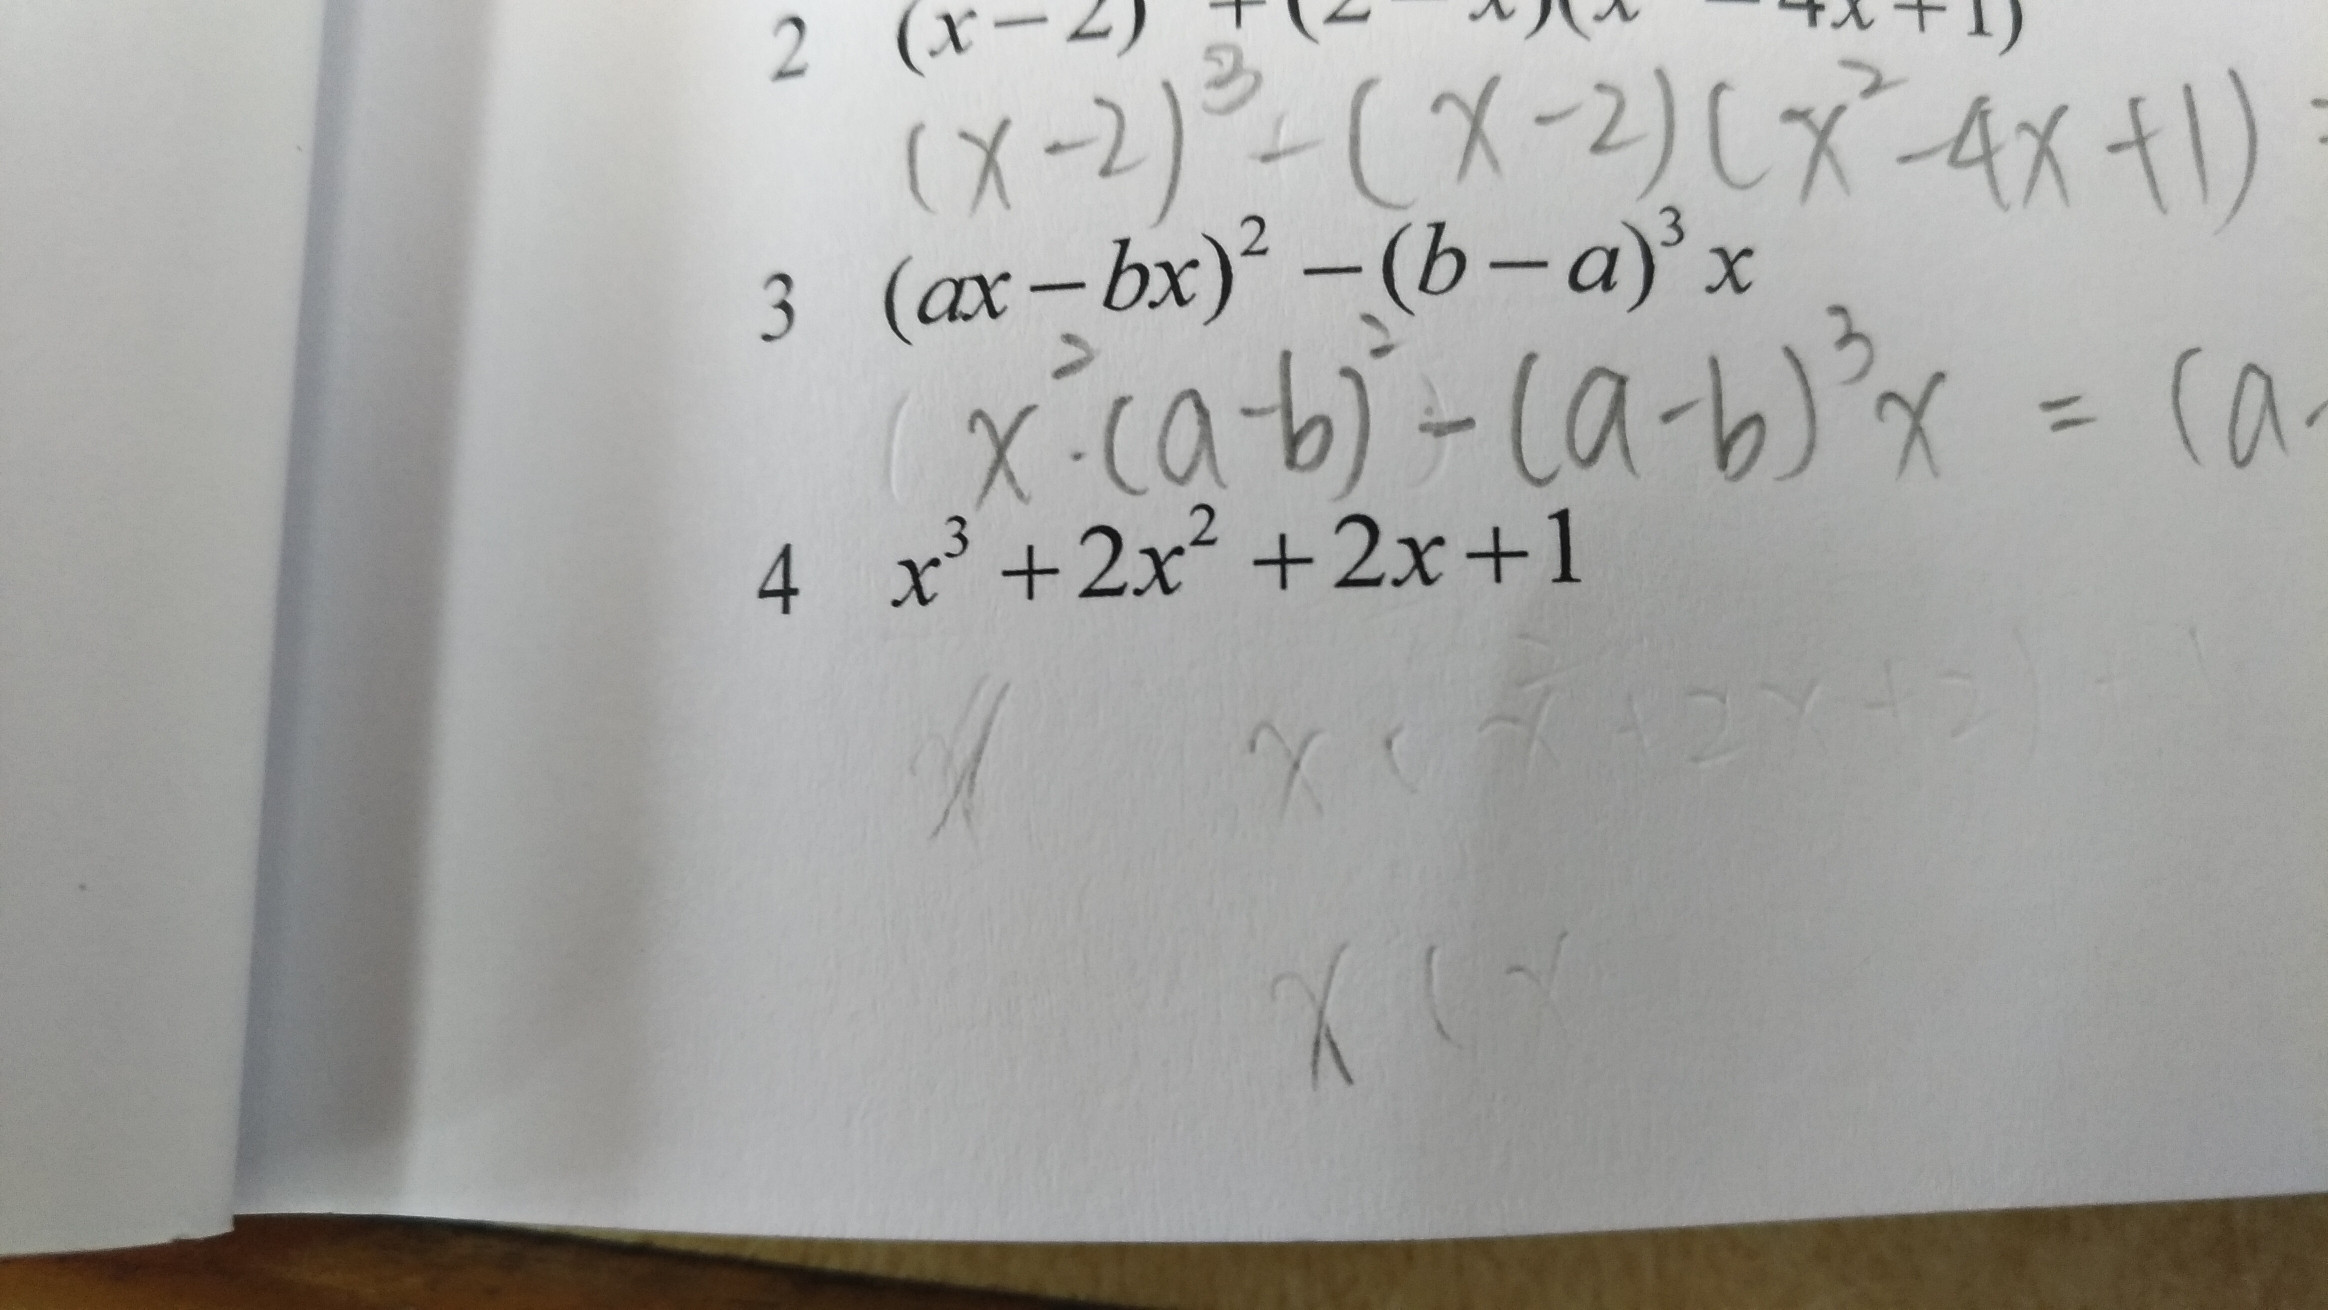 2 (x-2) + (2-x)(x -4x+1)
(x-2)³ - (x-2)(x²-4x+1) =
3 (ax-bx)² -(b-a)³ x
x²·(a-b)² - (a-b)³x = (a-
4 x³+2x²+2x+1
x x(x²+2x+2)
x(x